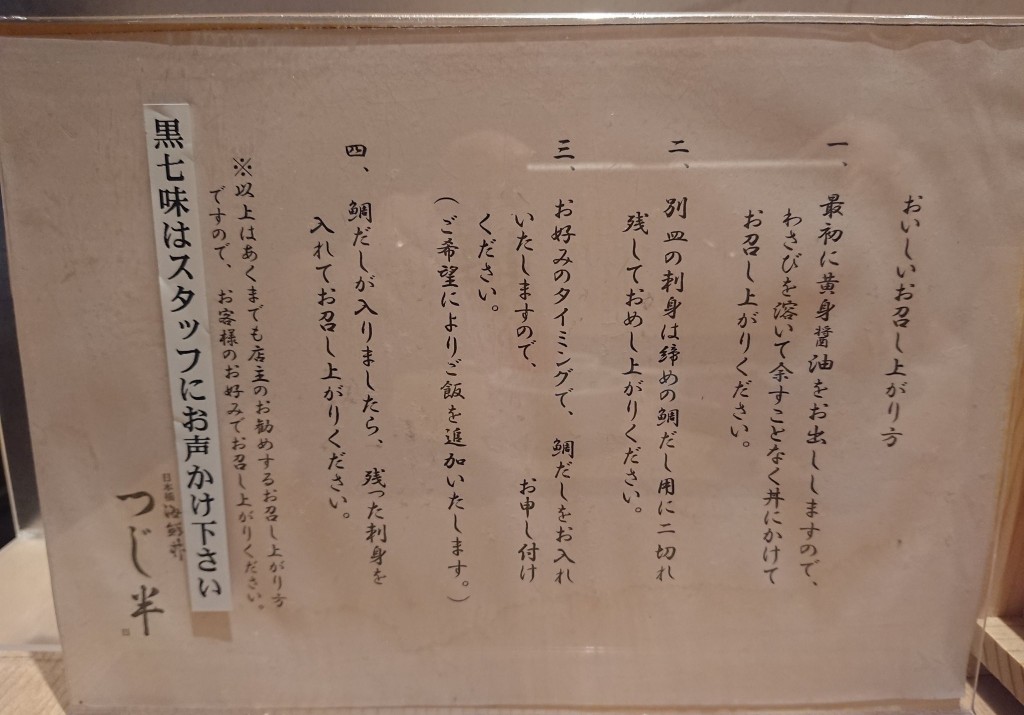 おいしいお召し上がり方
一、最初に黄身醤油をお出ししますので、
わさびを溶いて余すことなく丼にかけて
お召し上がりください。
二、別皿の刺身は締めの鯛だし用に二切れ
残しておめし上がりください。
三、お好みのタイミングで、鯛だしをお入れ
いたしますので、お申し付け
ください。
(ご希望によりご飯を追加いたします。)
四、鯛だしが入りましたら、残った刺身を
入れてお召し上がりください。
※以上はあくまでも店主のお勧めするお召し上がり方
ですので、お客様のお好みでお召し上がりください。
黒七味はスタッフにお声かけ下さい
日本橋海鮮丼
つじ半